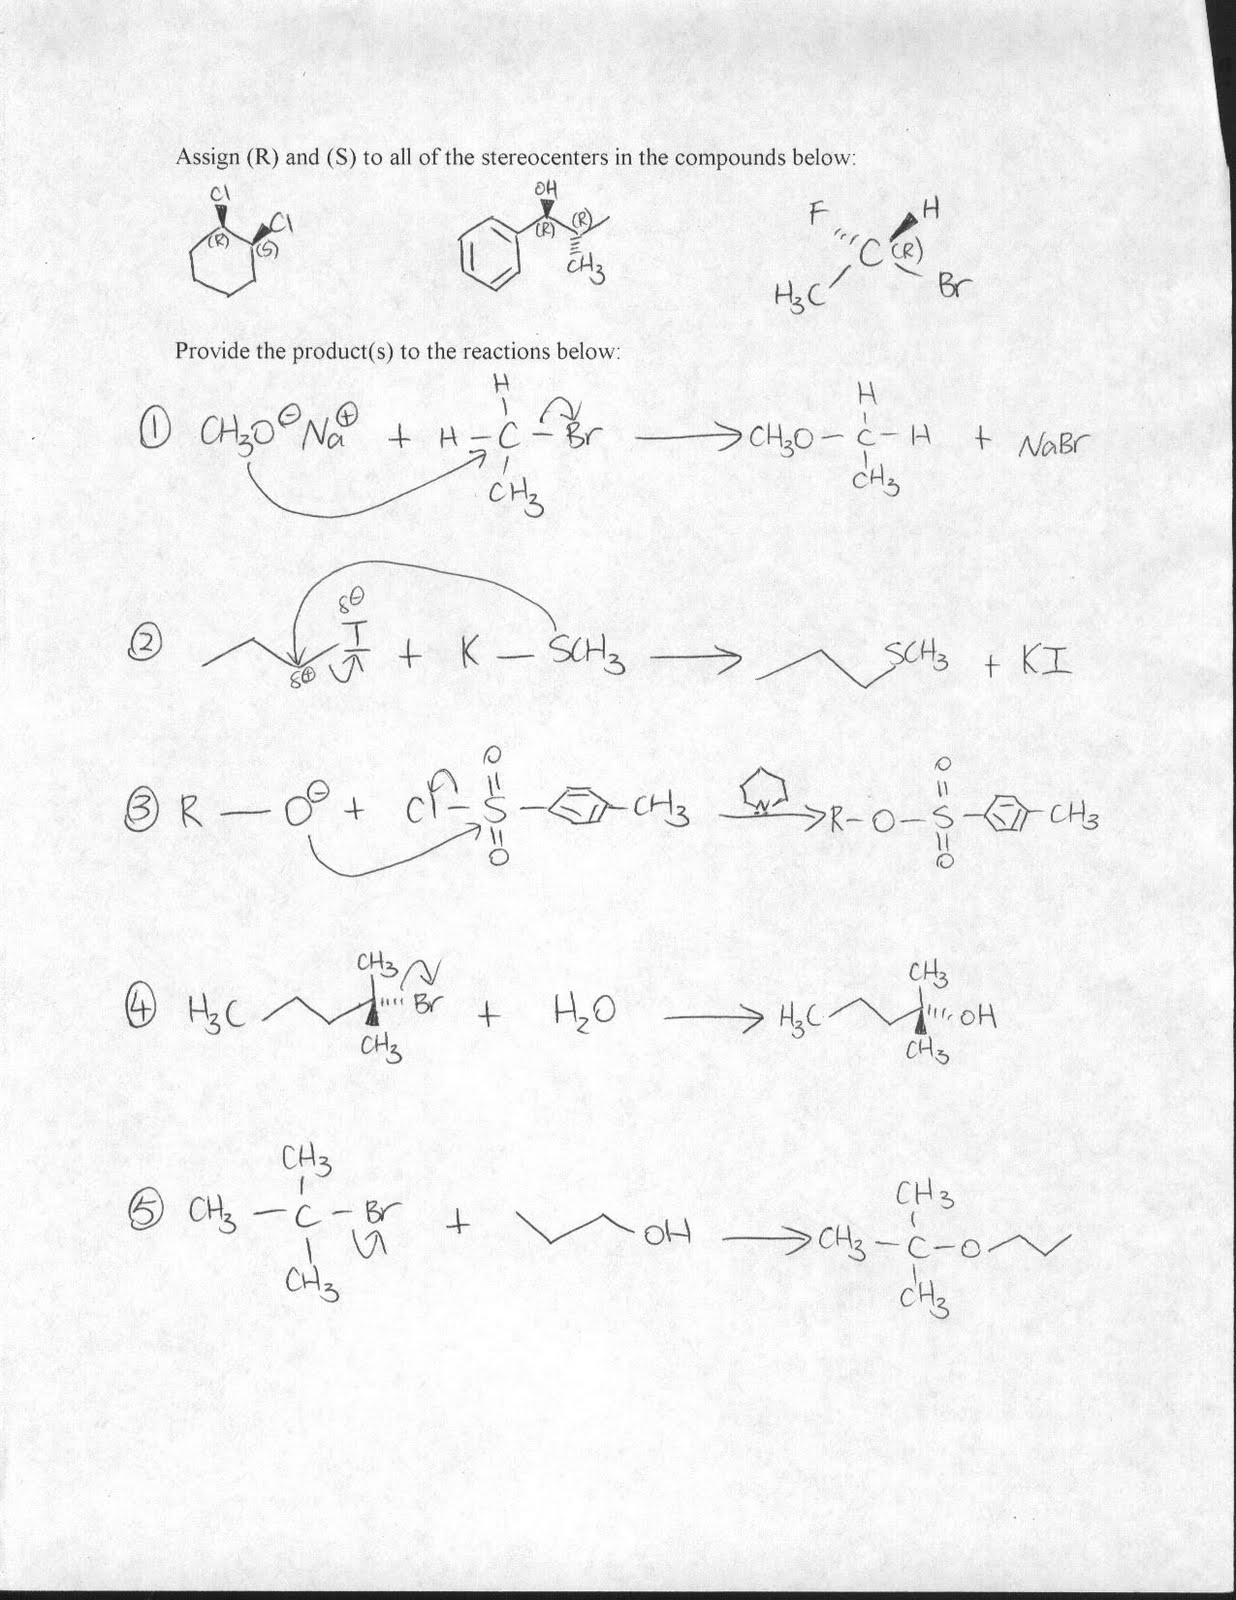 Assign (R) and (S) to all of the stereocenters in the compounds below:
Cl
Cl
(R)
(S)
OH
(R)
(R)
CH3
F
H
C (R)
H3C
Br
Provide the product(s) to the reactions below:
H
① CH3O⊖ Na⊕ + H – C – Br → CH3O – C – H + NaBr
CH3
H
CH3
δ⊖
② I + K – SCH3 → SCH3 + KI
δ⊕
O
O
③ R – O⊖ + Cl – S – CH3 → R – O – S – CH3
N
O
O
CH3
CH3
④ H3C Br + H2O → H3C OH
CH3
CH3
CH3
CH3
⑤ CH3 – C – Br + OH → CH3 – C – O
CH3
CH3